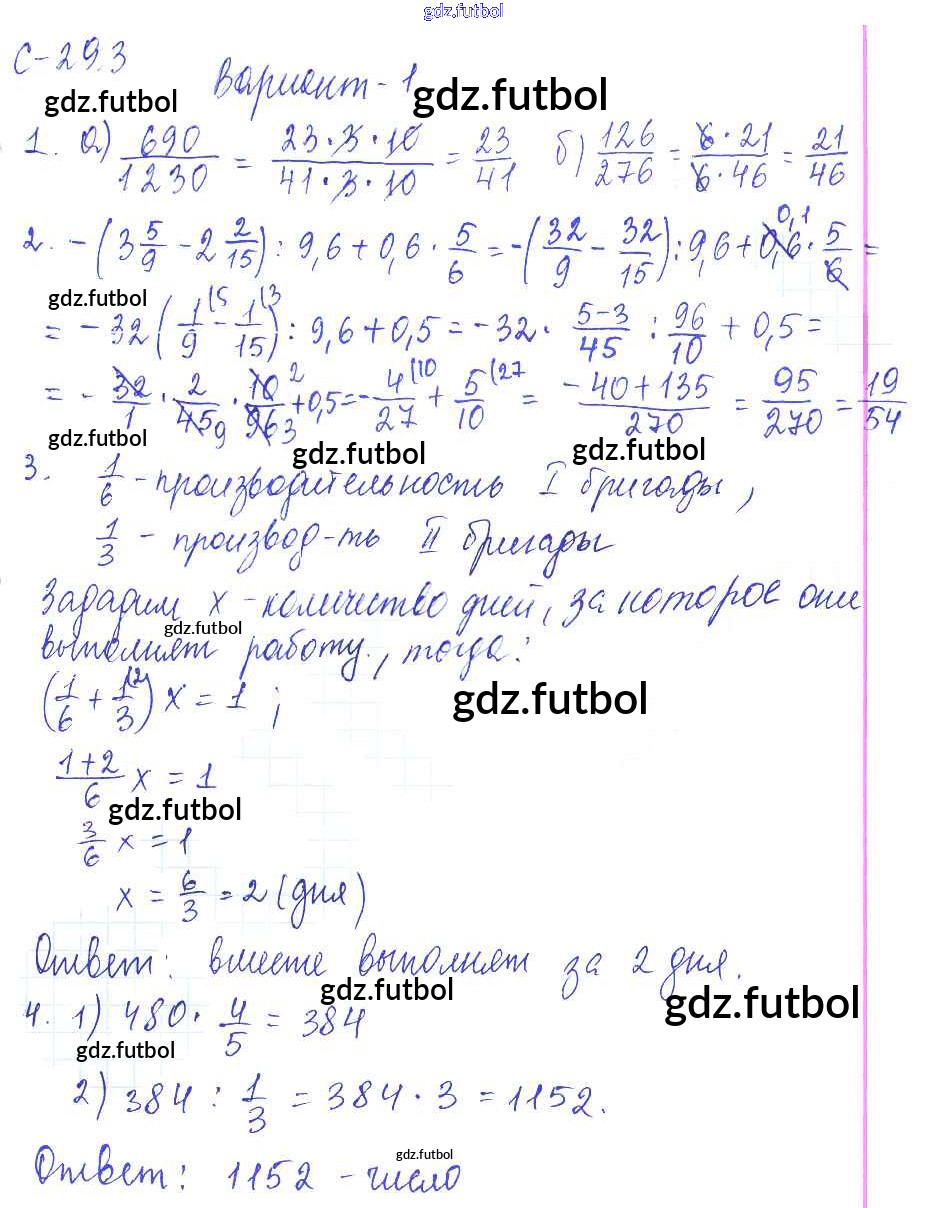 gdz.futbol
С-29.3
Вариант-1
gdz.futbol gdz.futbol
1. а) 690/1230 = 23·3·10/41·3·10 = 23/41 б) 126/276 = 6·21/6·46 = 21/46
2. -(3 5/9 - 2 2/15) : 9,6 + 0,6 · 5/6 = -(32/9 - 32/15) : 9,6 + 0,6 · 5/6 = 0,1
gdz.futbol
= -32 (1/9 (5 - 1/15 (3) : 9,6 + 0,5 = -32 · 5-3/45 : 96/10 + 0,5 =
= - 32/1 · 2/45 9 · 10 2/96 3 + 0,5 = - 4/27 (10 + 5/10 (27 = -40+135/270 = 95/270 = 19/54
gdz.futbol gdz.futbol gdz.futbol
3. 1/6 - производительность I бригады,
1/3 - производ-ть II бригады
Зададим x - количество дней, за которое они
gdz.futbol
выполнят работу, тогда:
(1/6 + 1/3 (2) x = 1 ;
gdz.futbol
1+2/6 x = 1
gdz.futbol
3/6 x = 1
x = 6/3 = 2 (дня)
Ответ: вместе выполнят за 2 дня.
gdz.futbol gdz.futbol
4. 1) 480 · 4/5 = 384
gdz.futbol
2) 384 : 1/3 = 384 · 3 = 1152.
gdz.futbol
Ответ: 1152 - число